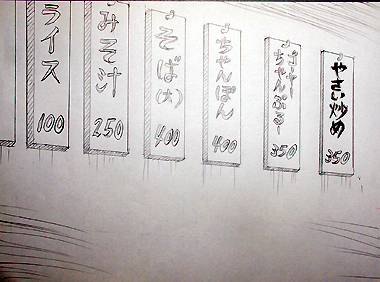 ライス
100
みそ汁
250
そば(大)
400
ちゃんぽん
400
ゴーヤー
ちゃんぷるー
350
やさい炒め
350